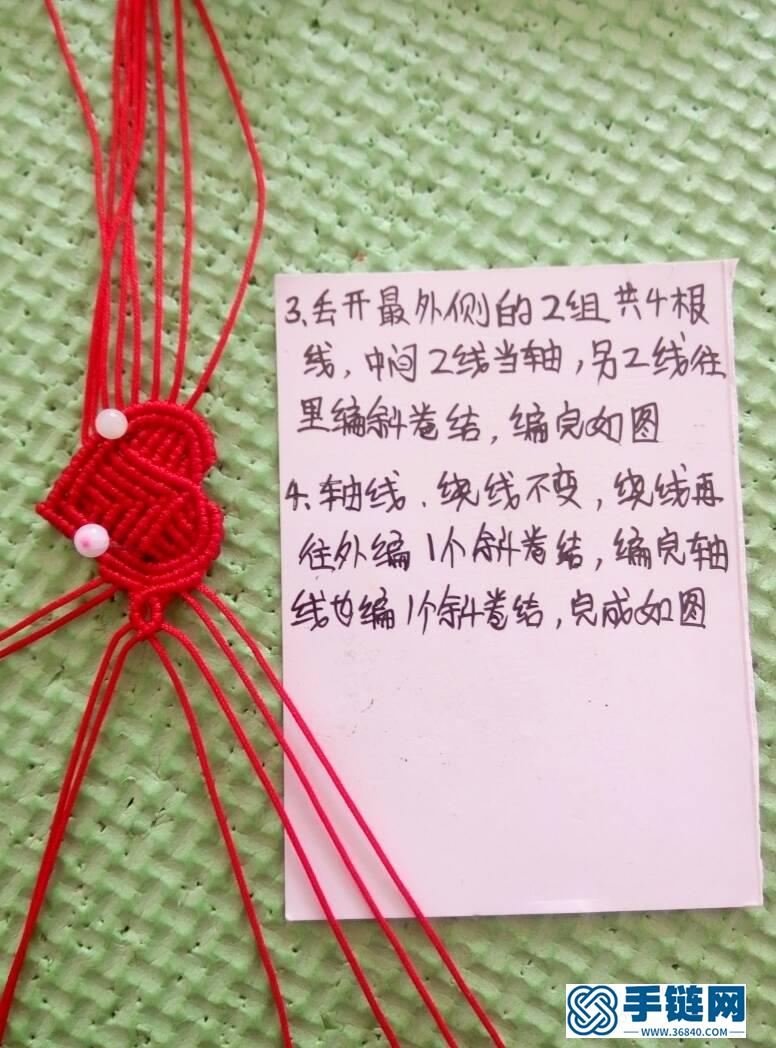 3、丢开最外侧的2组共4根
线，中间2线当轴，另2线往
里编斜卷结，编完如图
4、轴线、绕线不变，绕线再
往外编1个斜卷结，编完轴
线也编1个斜卷结，完成如图
手链网
WWW.36840.COM